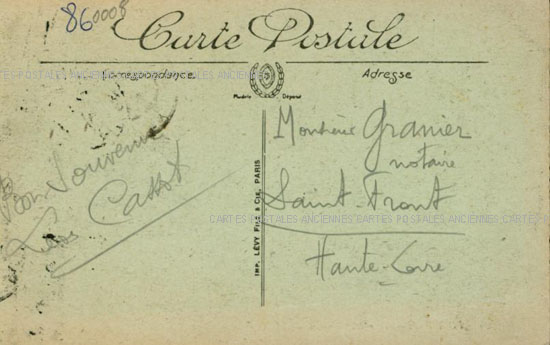 86 0008
Carte Postale
Correspondance
Adresse
Modèle Déposé
CARTES POSTALES ANCIENNES CARTES POSTALES ANCIENNES CARTES POSTALES ANCIENNES
Bon Souvenir
Cassot
IMP. LÉVY FILS & CIE, PARIS
Monsieur Granier
notaire
Saint-Front
CARTES POSTALES ANCIENNES CARTES POSTALES ANCIENNES CARTES
Haute-Loire